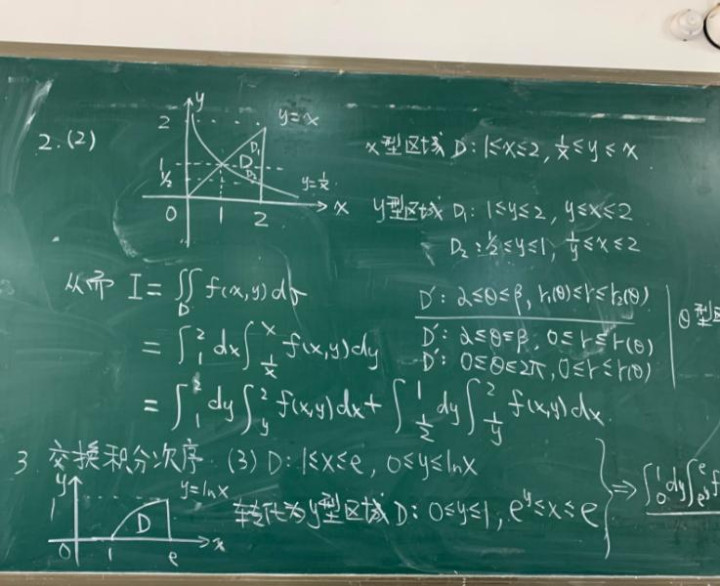 2.(2)
y
2
y=x
1
D₁
D
½
D₂
y=1/x
0 1 2 x
x型区域 D: 1≤x≤2, 1/x≤y≤x
y型区域 D₁: 1≤y≤2, y≤x≤2
D₂: ½≤y≤1, 1/y≤x≤2
从而 I=∬_D f(x,y)dσ
=∫₁² dx∫_{1/x}^x f(x,y)dy
=∫₁² dy∫_y² f(x,y)dx+∫_{1/2}^1 dy∫_{1/y}^2 f(x,y)dx
D': α≤θ≤β, r₁(θ)≤r≤r₂(θ)
D': α≤θ≤β, 0≤r≤r(θ)
D': 0≤θ≤2π, 0≤r≤r(θ)
θ型
3 交换积分次序 (3) D: 1≤x≤e, 0≤y≤lnx
y
1
y=lnx
D
0 1 e x
转化为y型区域 D: 0≤y≤1, e^y≤x≤e
⇒ ∫₀¹dy∫_{e^y}^e f